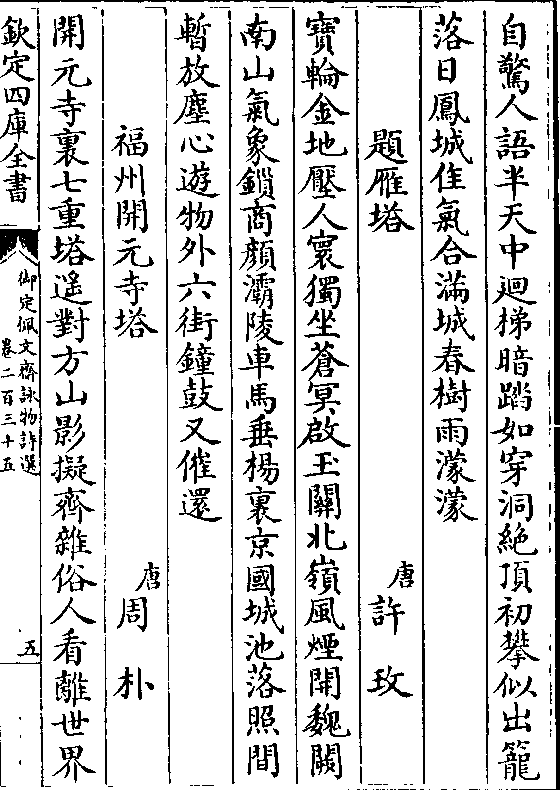 自驚人語半天中迴梯暗蹋如穿洞絶頂初攀似出籠
落日鳳城佳氣合滿城春樹雨濛濛
題雁塔 唐 許玫
寶輪金地壓人寰獨坐蒼冥啟玉關北嶺風煙開魏闕
南山氣象鎖商顔灞陵車馬垂楊裏京國城池落照間
暫放塵心遊物外六街鐘鼓又催還
福州開元寺塔 唐 周朴
開元寺裏七重塔遙對方山影擬齊雜俗人看離世界
欽定四庫全書
御定佩文齋詠物詩選
卷二百三十五
五